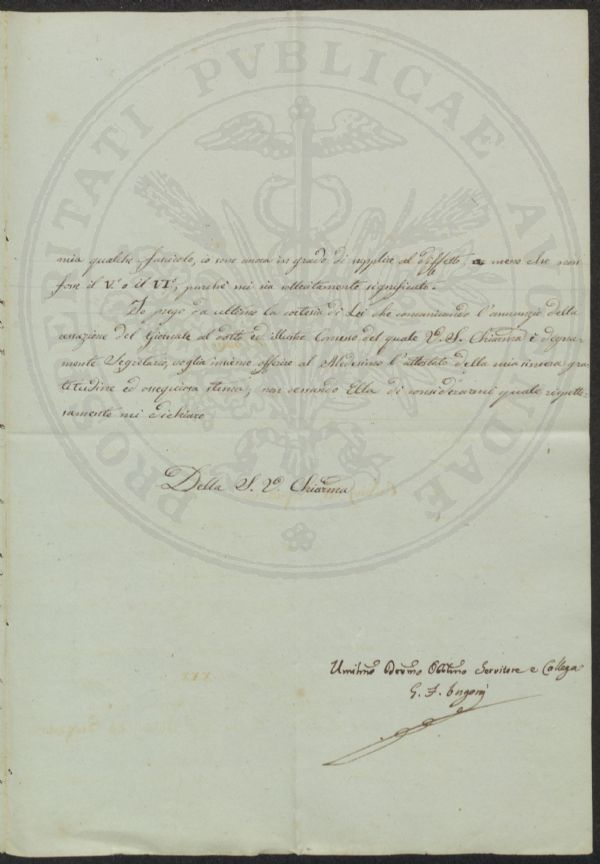 PROSPERITATI PVBLICAE AVGENDAE
mia qualche fascicolo, io sono ancora in grado di supplire al difetto, a meno che non
fosse il V.° o il VI.°, purchè mi sia sollecitamente significato.
Io prego da ultimo la cortesia di Lei che comunicando l'annunzio della
cessazione del Giornale al dotto ed illustre Consesso del quale V. S. Chiarma è degna-
mente Segretario, voglia insieme offerire al Medesimo l'attestato della mia sincera gra-
titudine ed ossequiosa stima; non cessando Ella di considerarmi quale rispetto-
samente mi dichiaro
Della S. V. Chiarma
Umilmo Devmo Obblmo Servitore e Collega
G. F.